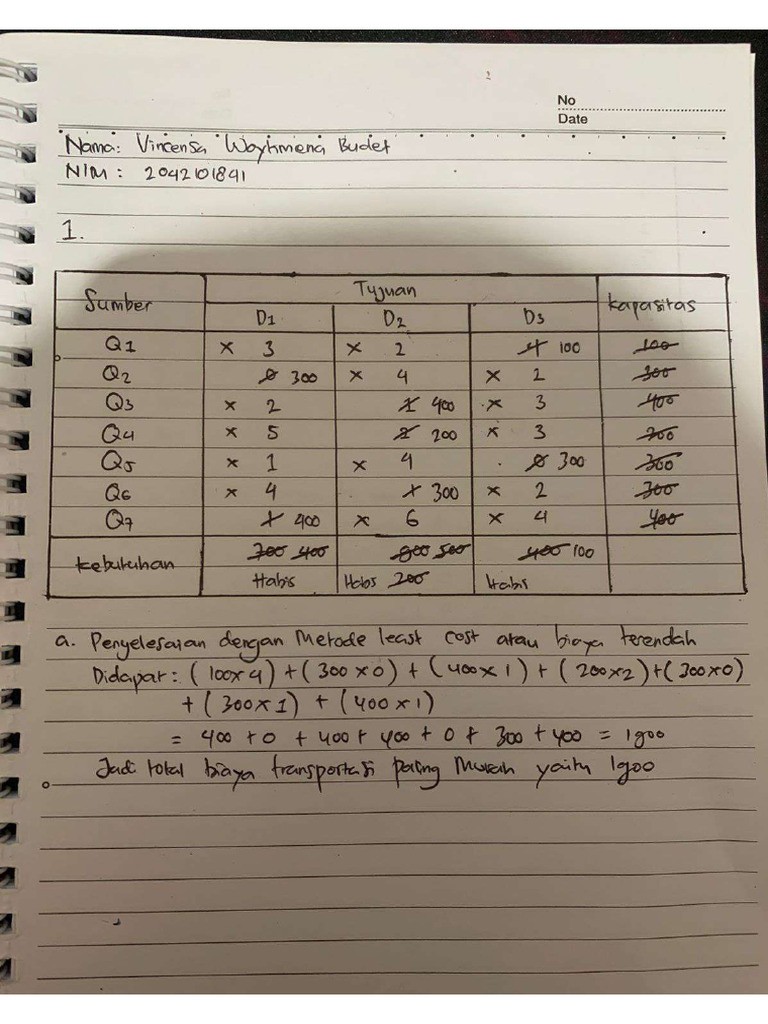 No
Date
Nama: Vincensa Woykmena Budet
NIM : 2042101841
1.
Sumber Tujuan kapasitas
D1 D2 D3
Q1 x 3 x 2 4 100 100
Q2 0 300 x 4 x 2 300
Q3 x 2 1 400 x 3 400
Q4 x 5 2 200 x 3 200
Q5 x 1 x 4 0 300 300
Q6 x 4 1 300 x 2 300
Q7 1 400 x 6 x 4 400
kebutuhan 700 400 800 500 400 100
Habis Habs 200 Habis
a. Penyelesaian dengan Metode least cost atau biaya terendah
Didapat : (100x4) + (300x0) + (400x1) + (200x2)+(300x0)
+ (300x1) + (400x1)
= 400 + 0 + 400 + 400 + 0 + 300 + 400 = 1900
Jadi total biaya transportasi paling Murah yaitu 1900